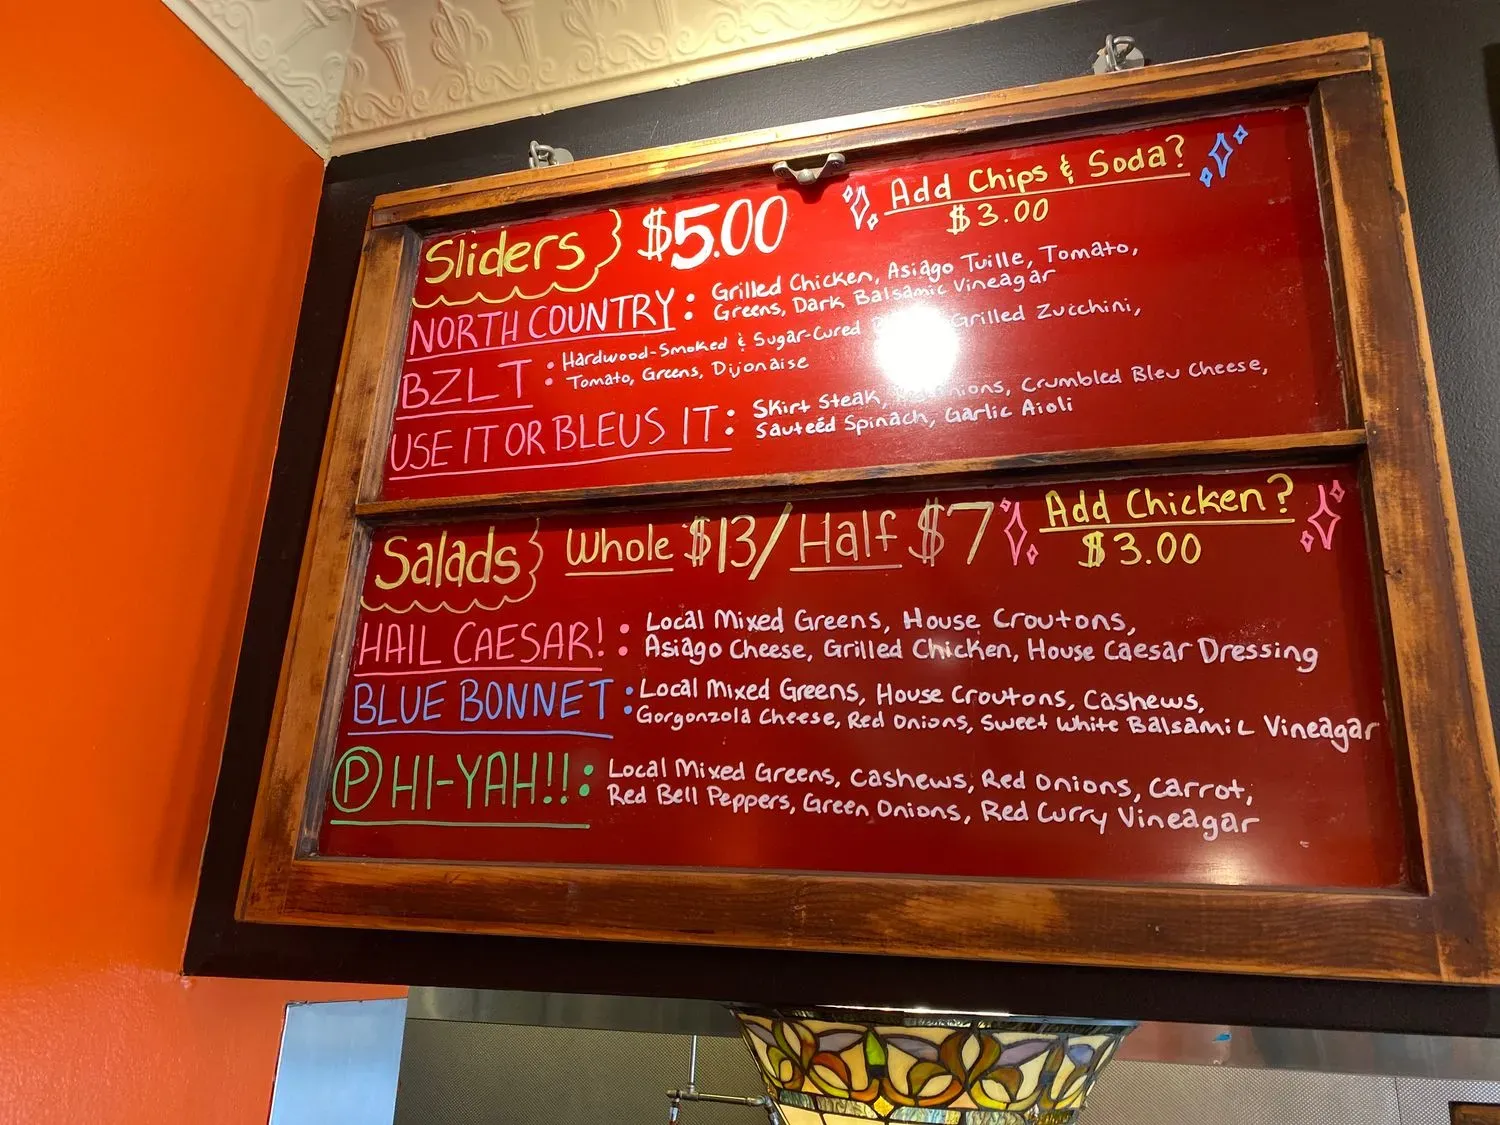 Sliders $5.00
Add Chips & Soda?
$3.00
NORTH COUNTRY: Grilled Chicken, Asiago Tuille, Tomato,
Greens, Dark Balsamic Vineagar
BZLT: Hardwood-Smoked & Sugar-Cured Grilled Zucchini,
Tomato, Greens, Dijonaise
USE IT OR BLEUS IT: Skirt Steak, Crumbled Bleu Cheese,
Sauteéd Spinach, Garlic Aioli
Salads Whole $13/Half $7
Add Chicken?
$3.00
HAIL CAESAR!: Local Mixed Greens, House Croutons,
Asiago Cheese, Grilled Chicken, House Caesar Dressing
BLUE BONNET: Local Mixed Greens, House Croutons, Cashews,
Gorgonzola Cheese, Red Onions, Sweet White Balsamic Vineagar
P HI-YAH!!: Local Mixed Greens, Cashews, Red Onions, Carrot,
Red Bell Peppers, Green Onions, Red Curry Vineagar